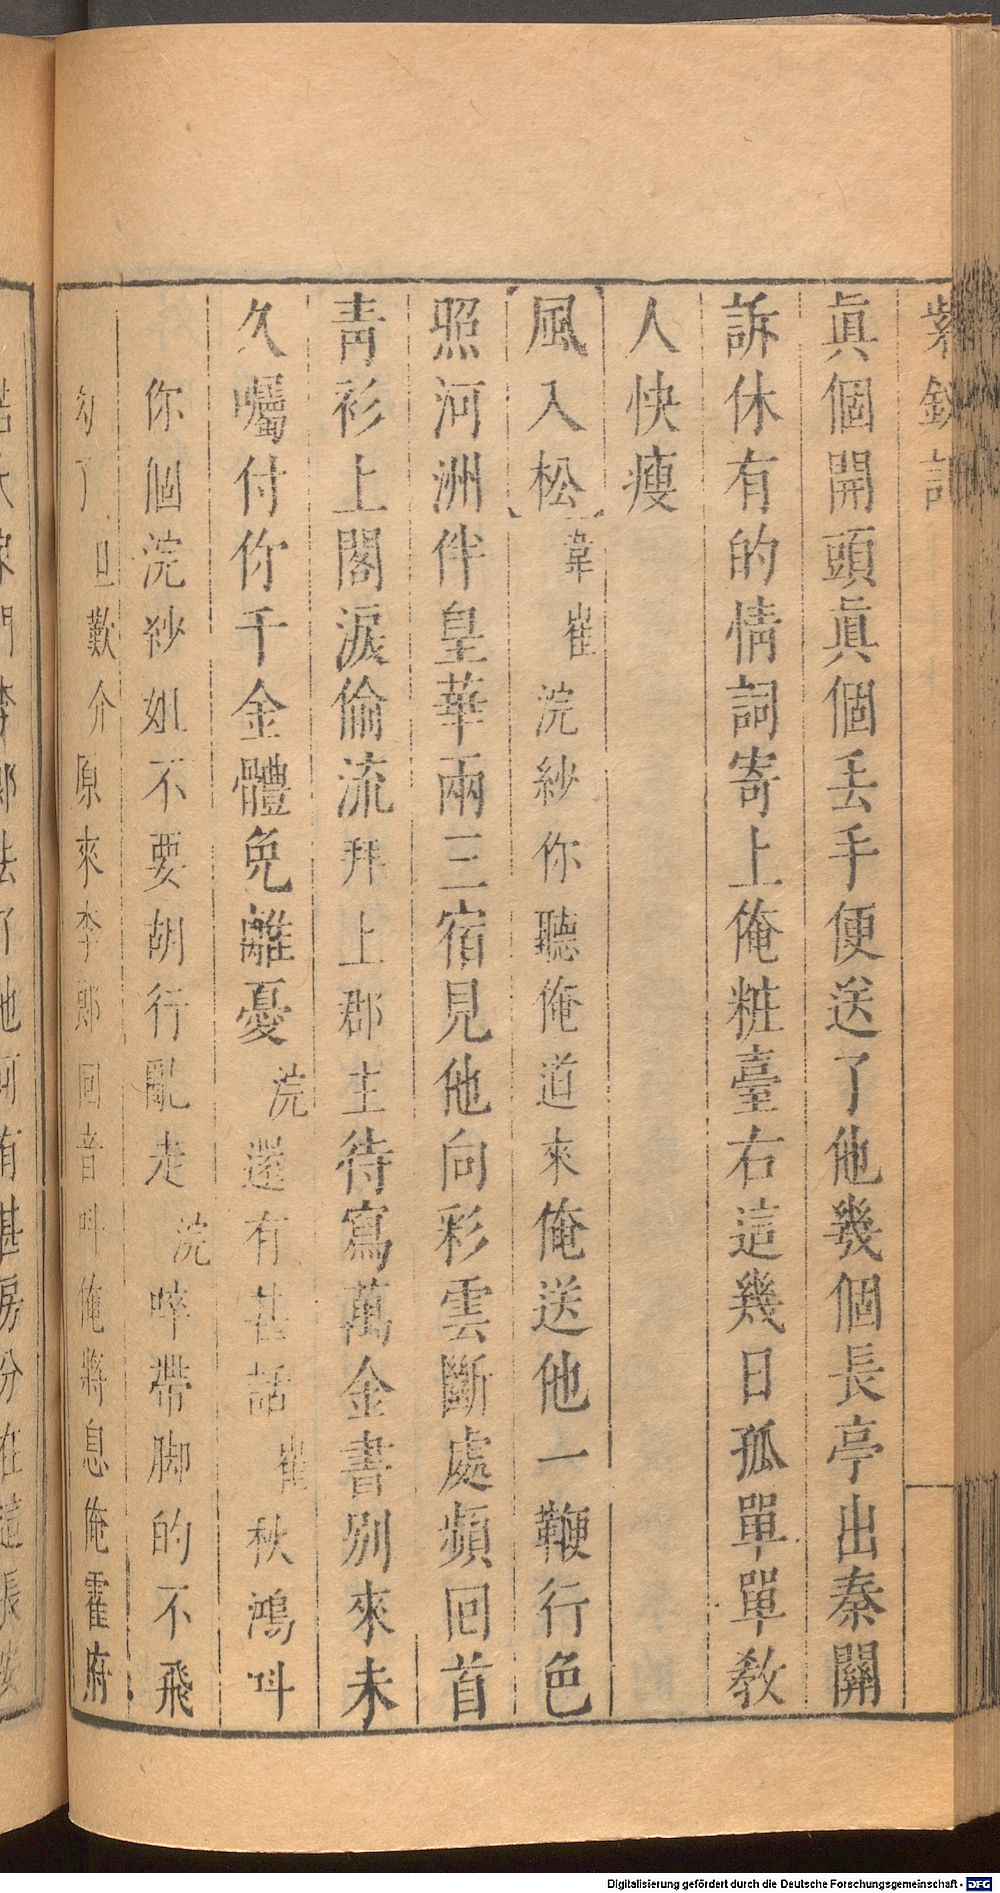 紫釵記
眞個開頭眞個丢手便送了他幾個長亭出秦關
訴休有的情詞寄上俺粧臺右這幾日孤單單教
人快瘦
風入松韋崔浣紗你聽俺道來俺送他一鞭行色
照河洲伴皇華兩三宿見他向彩雲斷處頻回首
青衫上閣淚偷流拜上郡主待寫萬金書別來未
久囑付你千金體免離憂浣還有甚話崔秋鴻呌
你個浣紗姐不要胡行亂走浣啐帶脚的不飛
勾了旦歎介原來李郎回音呌俺將息俺霍府
門李郎去了他何有甚房分在這長安
Digitalisierung gefördert durch die Deutsche Forschungsgemeinschaft - DFG